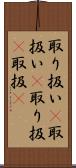 取り扱い取
扱い取り扱
取扱